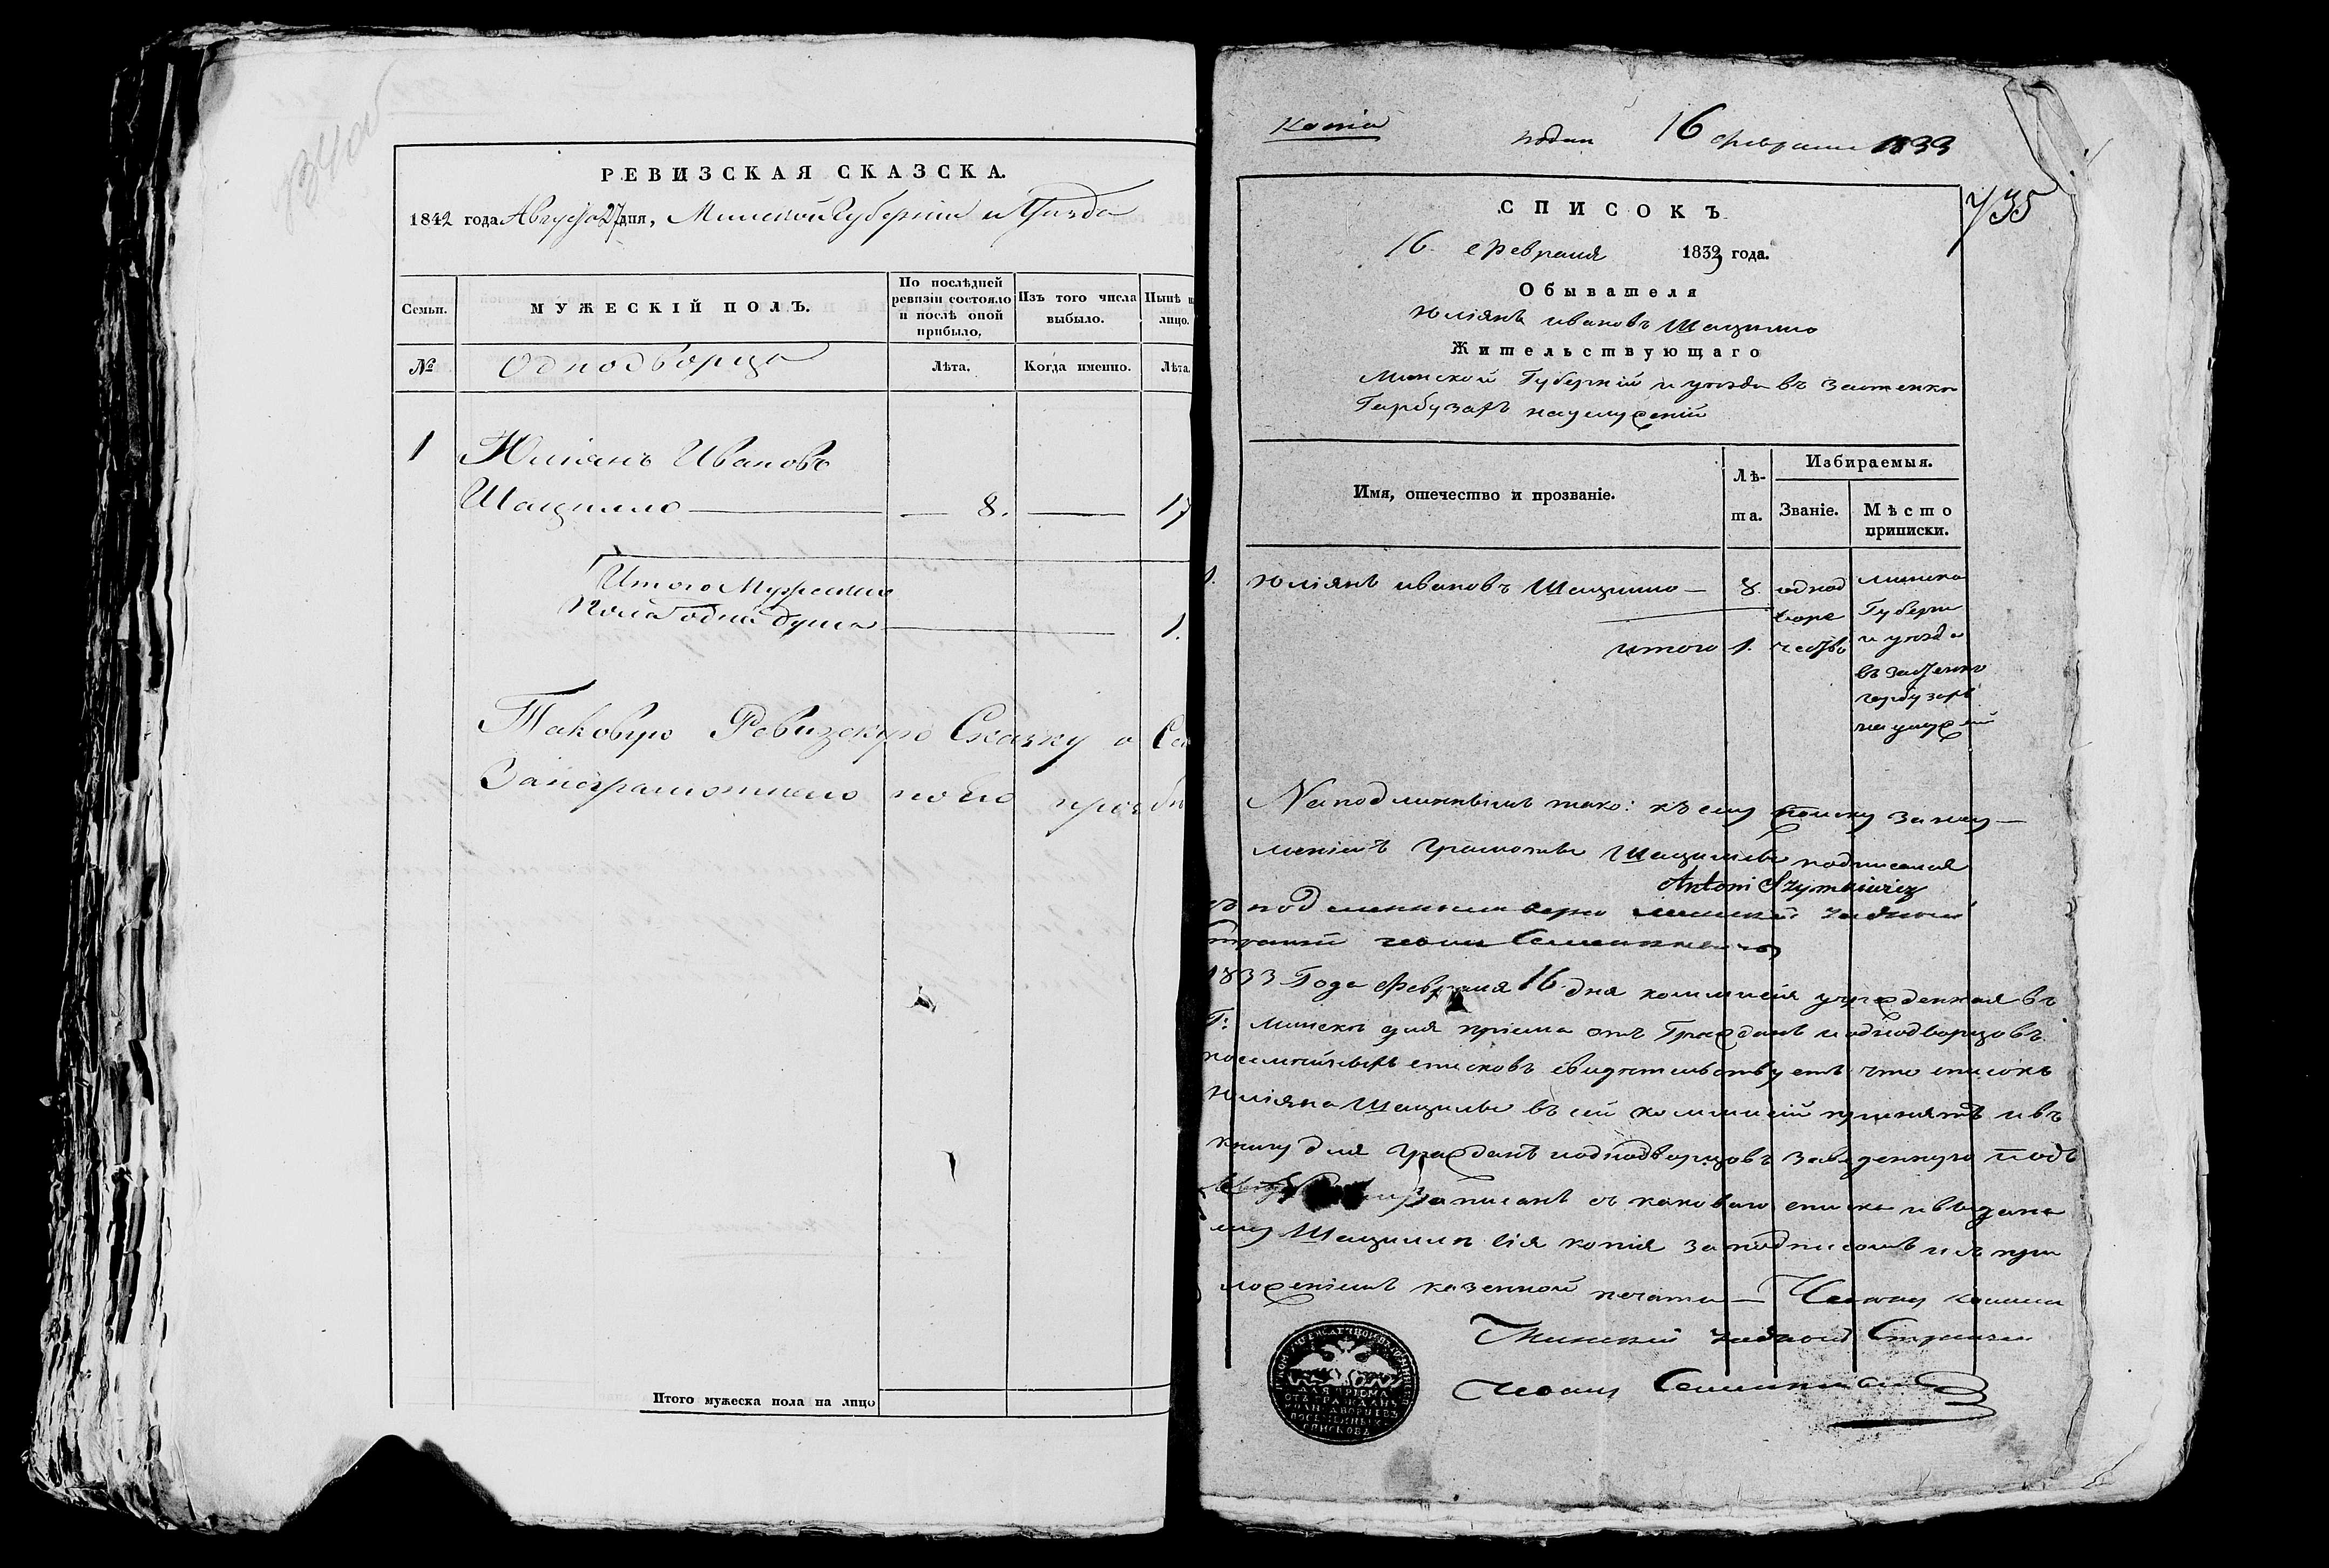 734об
РЕВИЗСКАЯ СКАЗСКА.
1842 года Августа 27 дня, Минской Губерніи и Уезда
Семьи.
МУЖЕСКІЙ ПОЛЪ.
По послѣдней ревизіи состояло и послѣ оной прибыло.
Изъ того числа выбыло.
Нынѣ на лицо.
№
Однодворца
Лѣта.
Когда именно.
Лѣта.
1 Юліянъ Ивановъ
Шащилло — 8. — 17
Итого Мужеска
Пола одна душа — 1.
Таковую Ревизскую Сказку о
по его прозбе
Итого мужеска пола на лицо
Копія
подан 16 февраля 1833
735
СПИСОКЪ
16 февраля 1833 года.
Обывателя
Юліянъ Ивановъ Шащилло
Жительствующаго
Минской Губерніи и уезда въ застенке
Гарбузахъ
Имя, отечество и прозваніе.
Лѣта.
Избираемыя.
Званіе.
Мѣсто приписки.
1. Юліянъ Ивановъ Шащилло — 8. однод
воре
чество
Минско
Губерн
и уезда
въ застенко
гарбузахъ
итого 1.
На подлинномъ тако: къ сему списку за неу—
меніемъ грамоты Шащиллы подписался
Antoni Szymkiewicz
съ подлиннымъ верно Минский
1833 Года Февраля 16 дня коммисія учрежденная въ
Г: Минске для пріема отъ Гражданъ и однодворцовъ
посемейныхъ списковъ свидетельствуетъ что списокъ
Юліяна Шащиллы въ сей коммисіи принятъ и въ
книгу для гражданъ и однодворцовъ заведенную подъ
записанъ съ каковаго списка и выдана
ему Шащилле сія копія за подписомъ и съ при
ложеніемъ казенной печати —
Минский Стряпчий
ДЛЯ ПРІЕМА
ОТЪ ГРАЖДАНЪ
И ОДНОДВОРЦЕВЪ
ПОСЕМЕЙНЫХЪ
СПИСКОВЪ